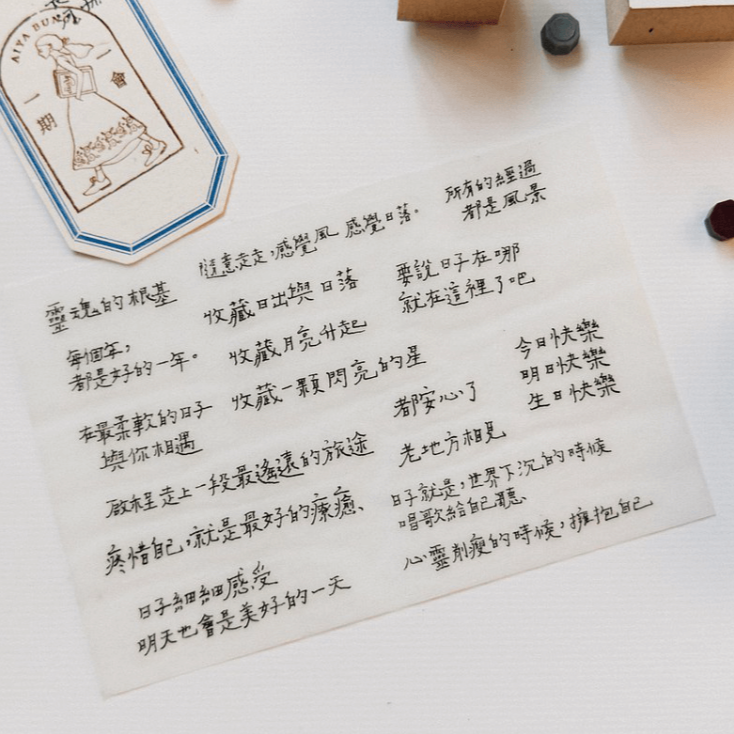 AIYA BUN
一期
一會
所有的經過
都是風景
隨意走走,感覺風 感覺日落。
靈魂的根基
收藏日出與日落
要說日子在哪
就在這裡了吧
每個年,
都是好的一年。
收藏月亮升起
收藏一顆閃亮的星
今日快樂
明日快樂
生日快樂
在最柔軟的日子
與你相遇
都安心了
老地方相見
啟程走上一段最遙遠的旅途
日子就是,世界下沉的時候
唱歌給自己聽、
疼惜自己,就是最好的療癒、
心靈削瘦的時候,擁抱自己
日子細細感受
明天也會是美好的一天